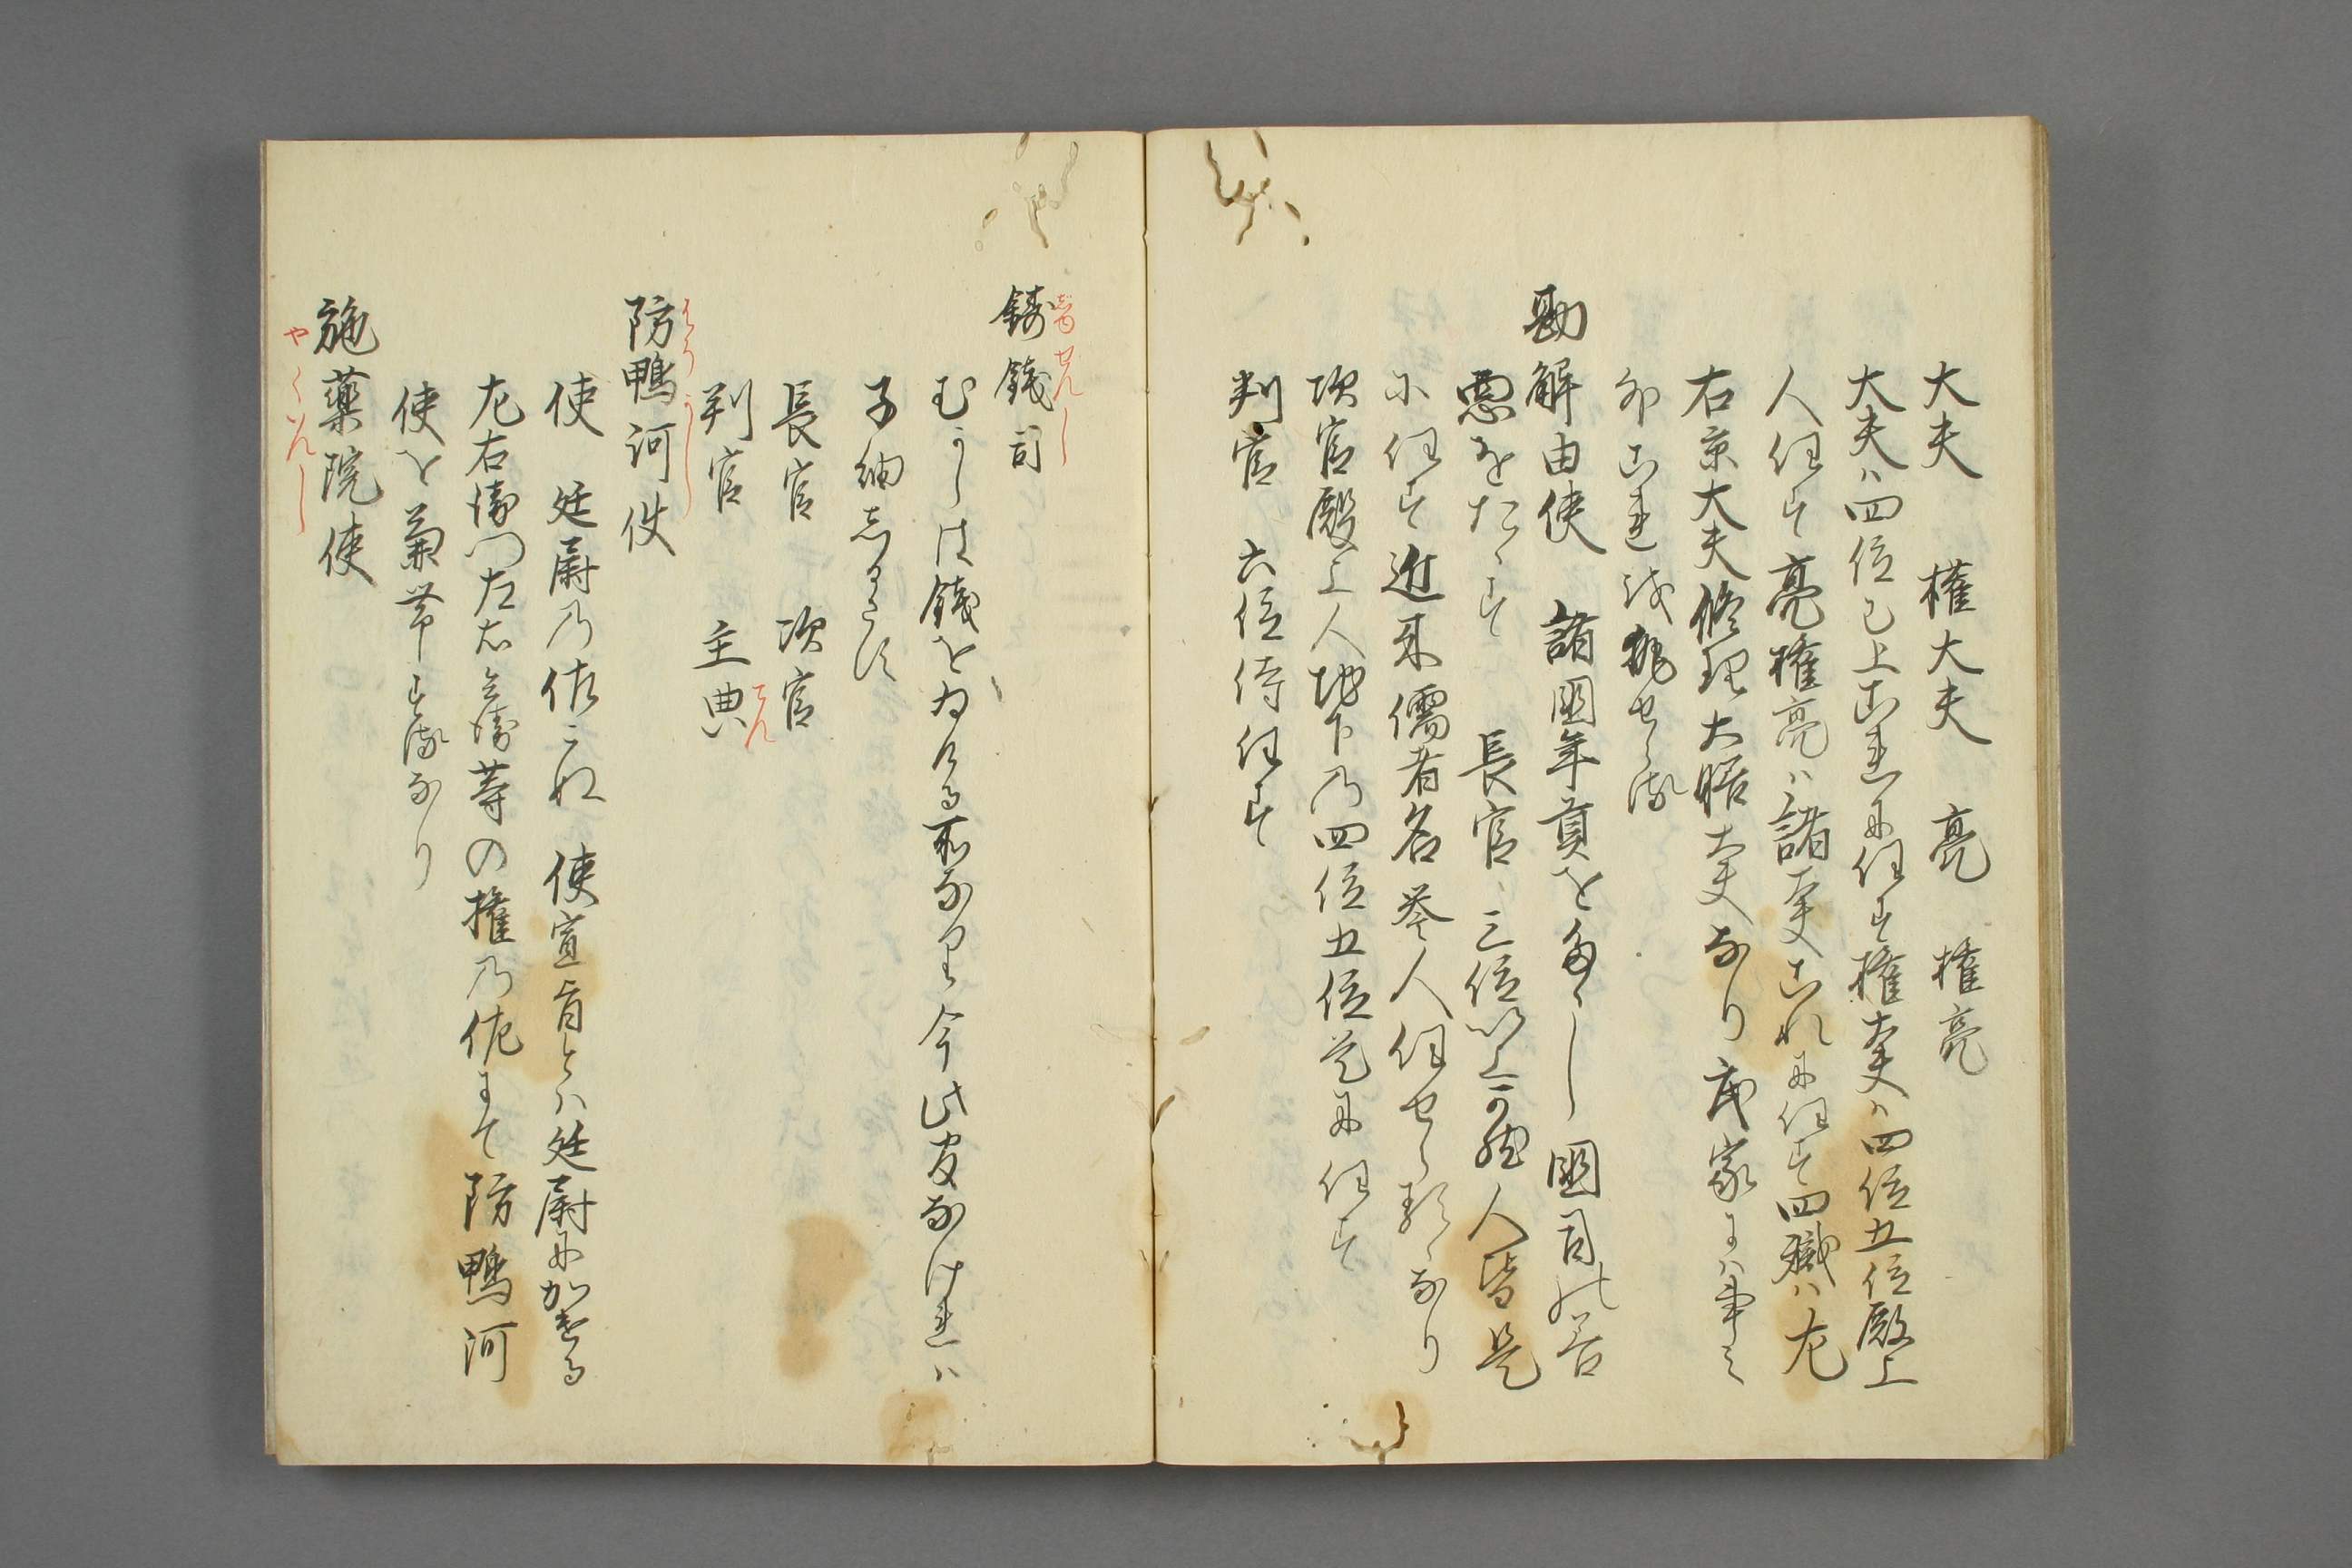 大夫　権大夫　亮　権亮
大夫ハ四位已上これに任す権大夫ハ四位五位殿上
人任す亮権亮ハ諸大夫これに任す四職ハ左
右京大夫修理大膳大夫なり武家にハ
勘解由使　諸国年貢を　国司の善
悪をたゝす　長官ハ三位以上可然人皆是
に任す近来儒者名誉人任せらるゝなり
次官殿上人地下の四位五位是に任す
判官　六位侍任す
鋳銭司
せんし
むかしは銭をゐける所なりしか今此官なけれハ
子細しるさす
長官　次官
判官　主典
てん
防鴨河使
使　廷尉の佐これ　使宣旨とハ廷尉に加ふる
左右衛門左右兵衛等の権の佐まて防鴨河
使を兼帯する なり
施薬院使
やくいんし